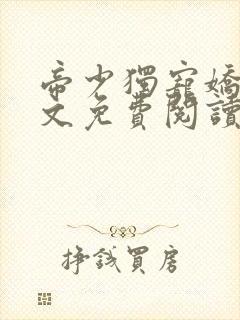 帝少獨寵嬌
文免費閱讀
掙錢買房